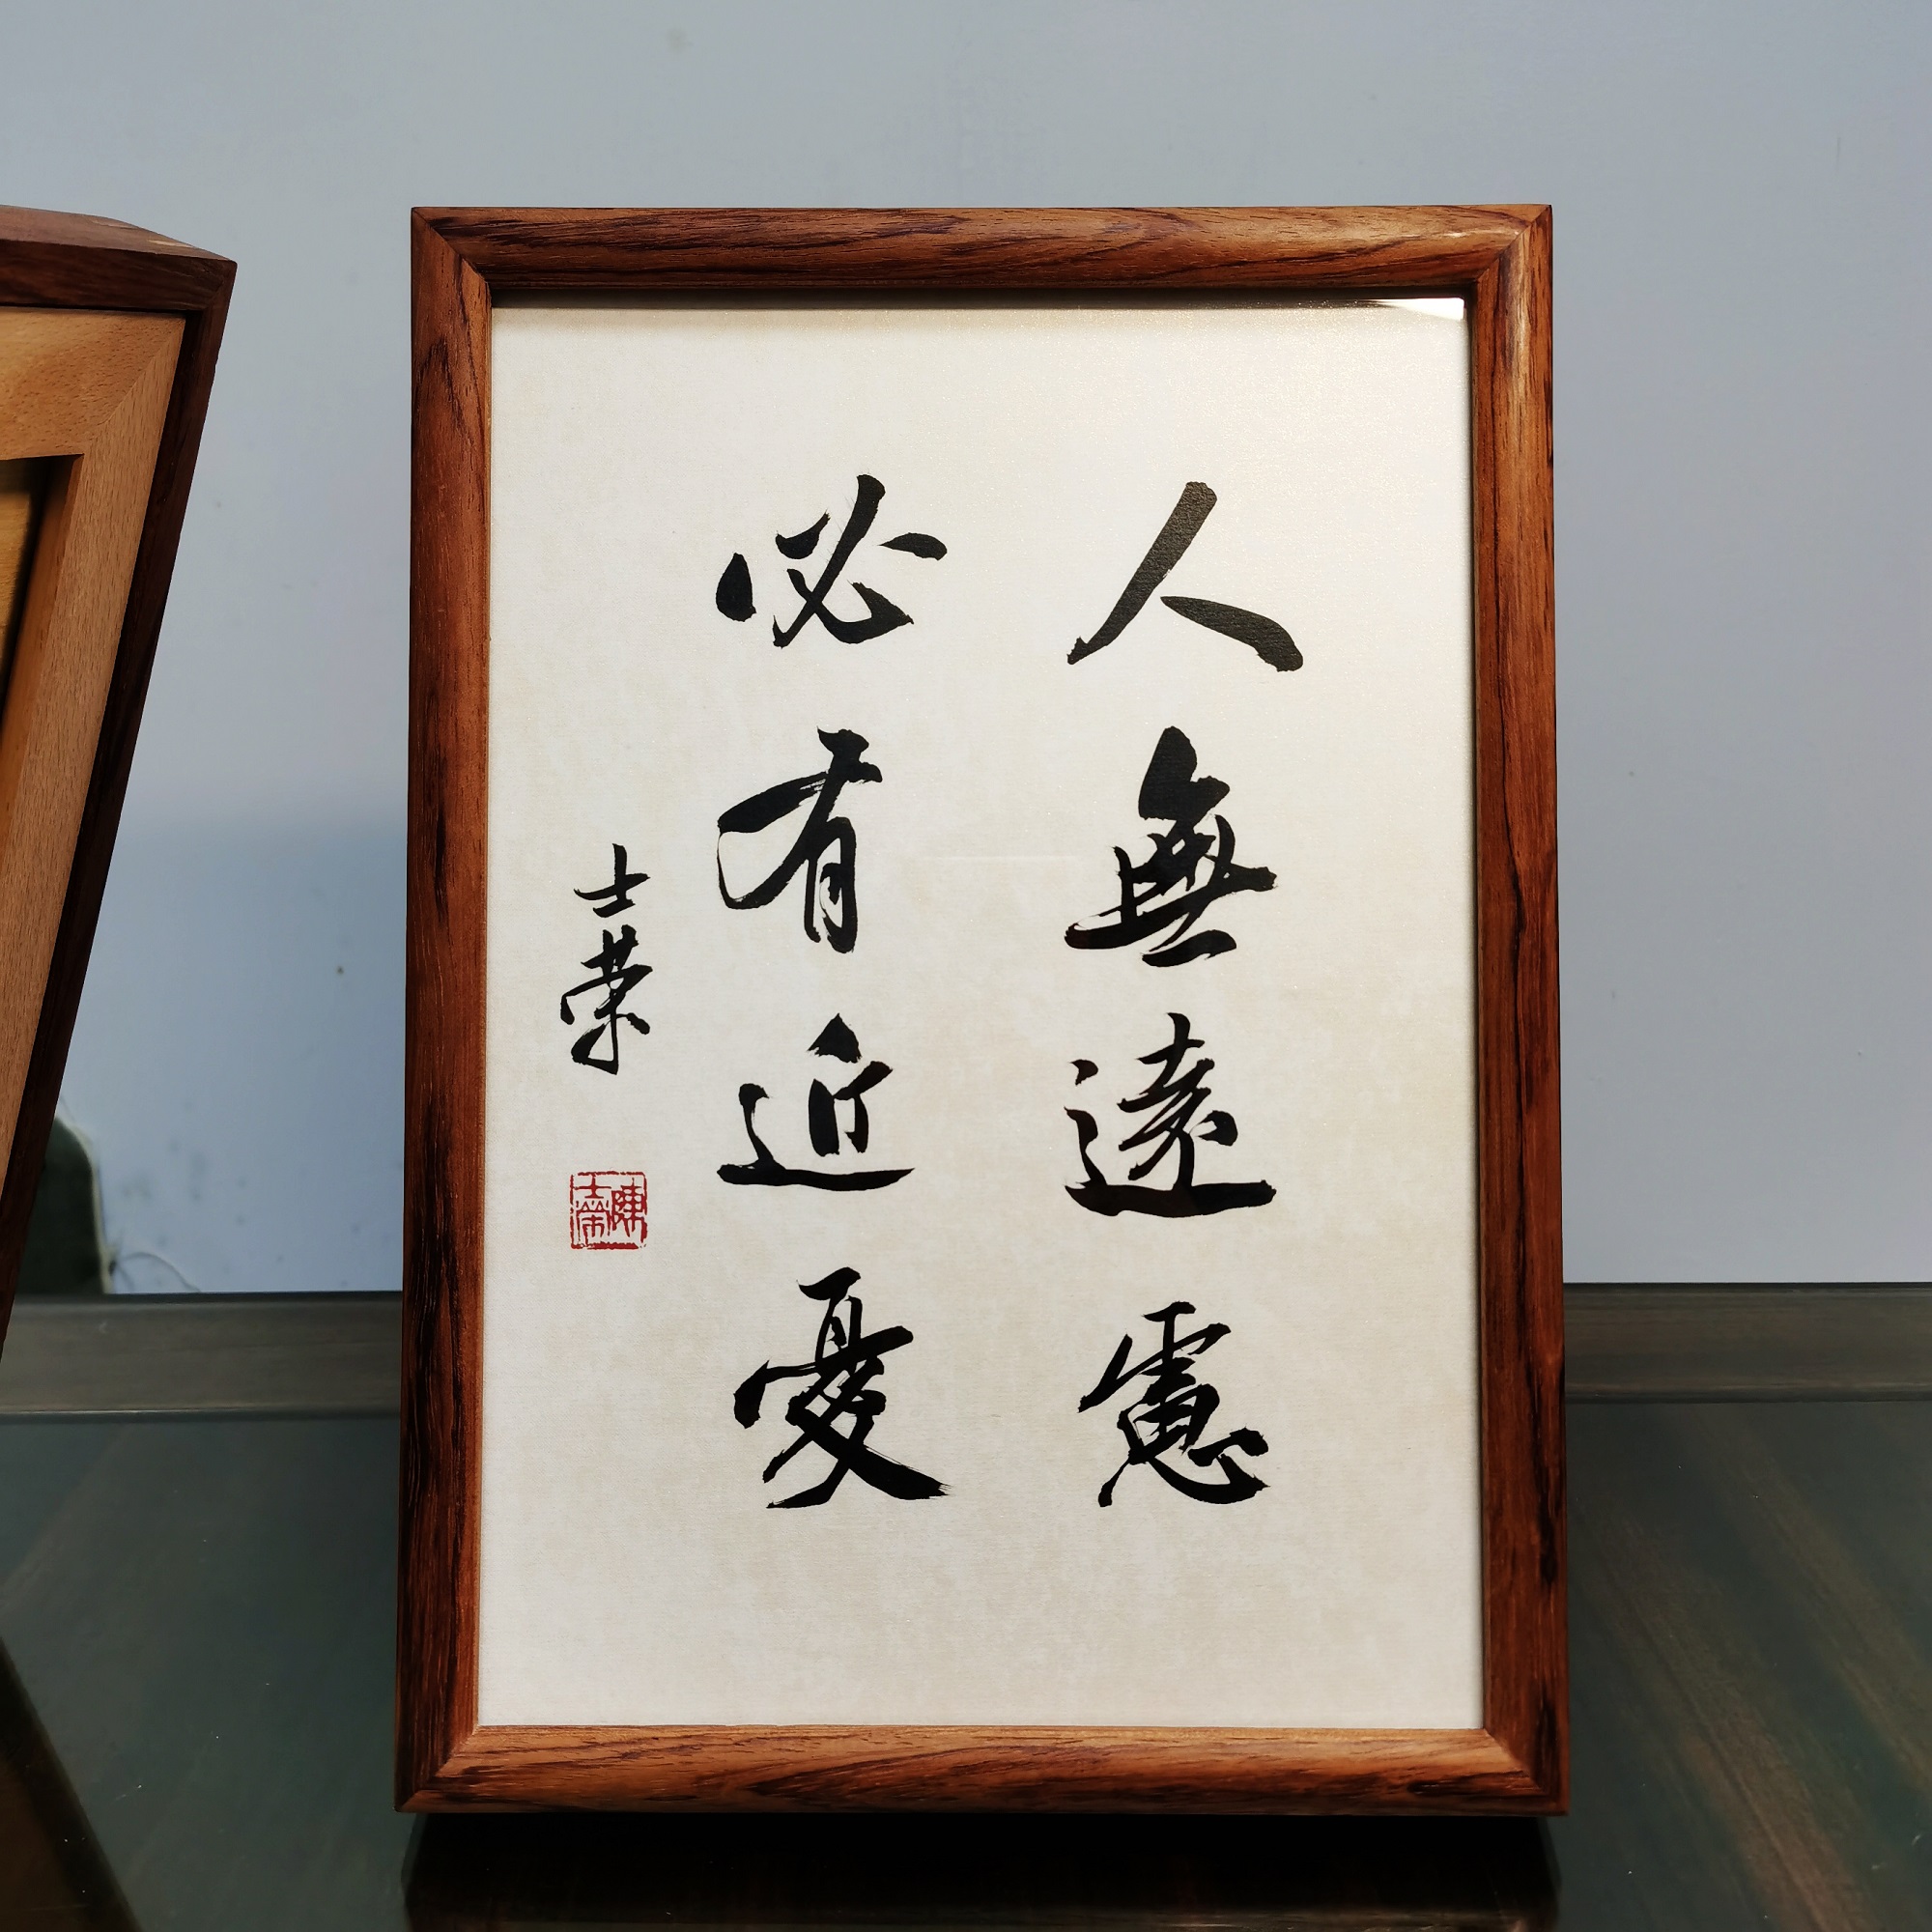 人無遠慮
必有近憂
士荣
陳士榮